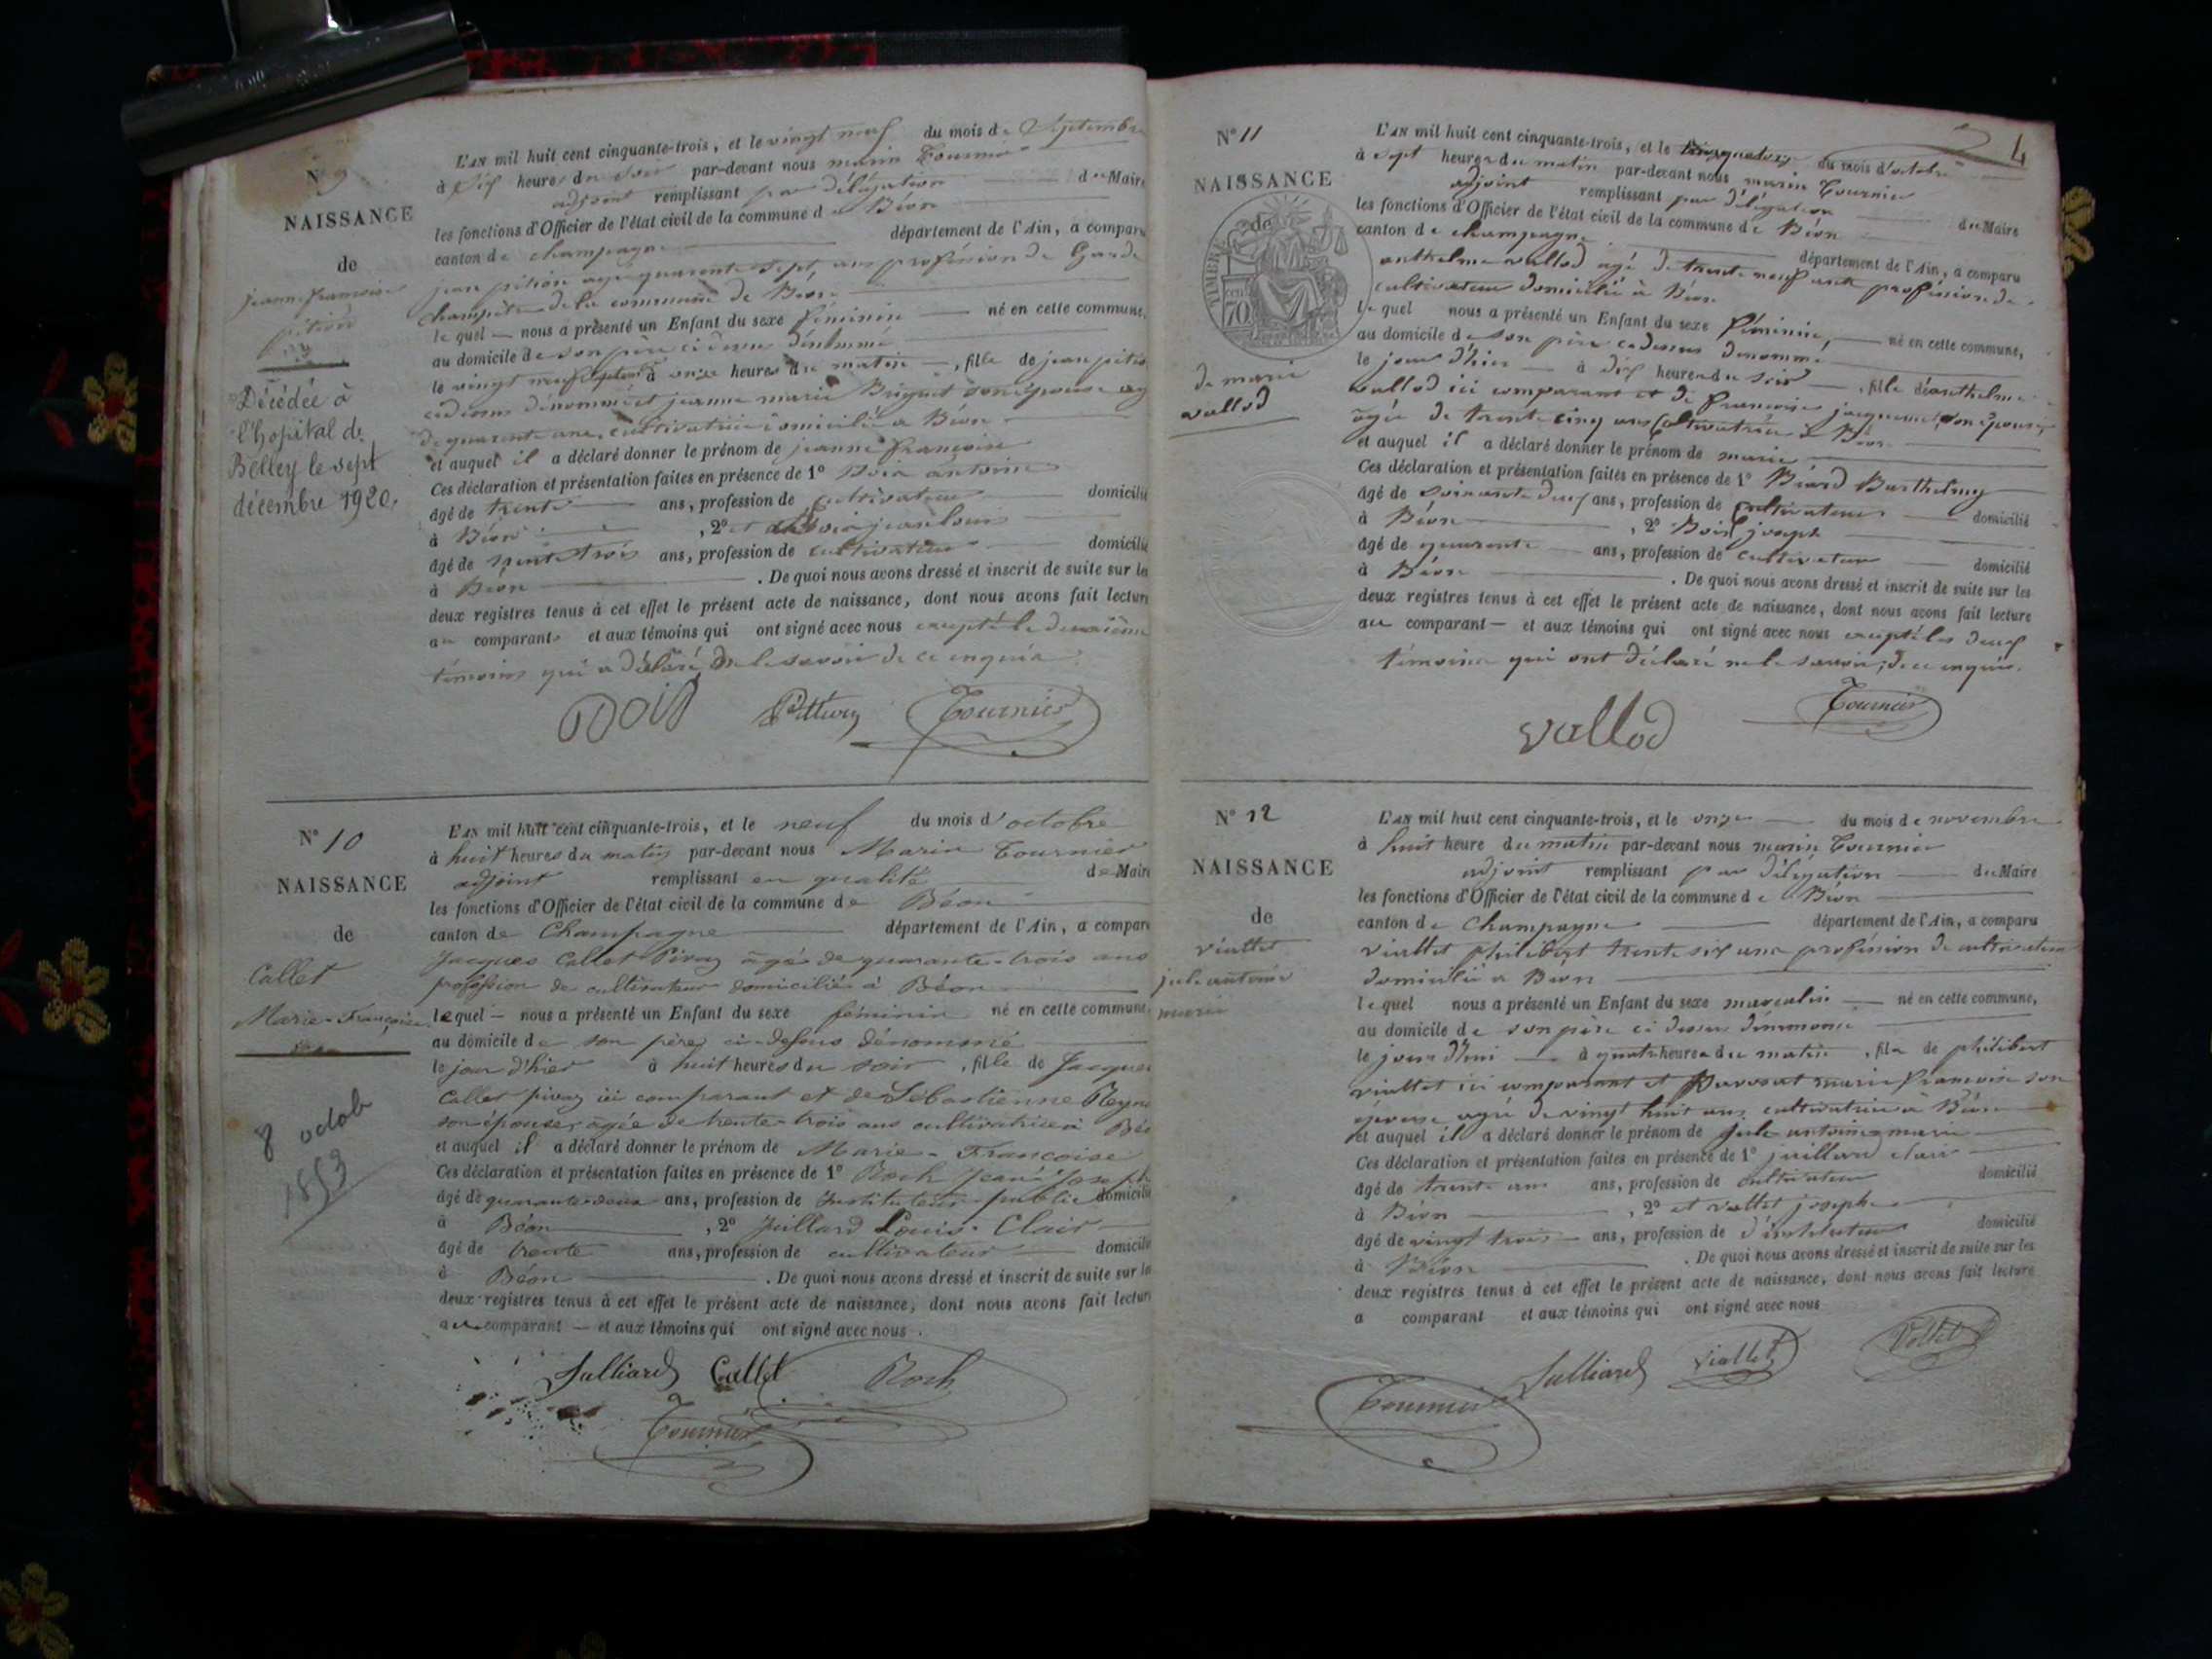 N° 9
NAISSANCE
de
jeanne françoise
pition
Décédée à
l'Hopital de
Belley le sept
décembre 1920.
L'AN mil huit cent cinquante-trois, et le vingt neuf du mois de Septembre
à six heures du soir par-devant nous marin Tournier
adjoint remplissant par délégation du Maire
les fonctions d'Officier de l'état civil de la commune de Béon
canton de champagne département de l'Ain, a comparu
jean pition agé quarente sept, ans profession de Garde
champêtre de la commune de Béon
le quel nous a présenté un Enfant du sexe féminin né en cette commune,
au domicile de son père ci dessus dénommé
le vingt neuf à onze heures du matin, fille de jean pition
cidessus dénommé et jeanne marie son épouse ag
de quarente ans, cultivatrice domiciliée a Béon
et auquel il a déclaré donner le prénom de jeanne françoise
Ces déclaration et présentation faites en présence de 1° antoine
âgé de trente ans, profession de cultivateur domicilié
à Béon, 2° et jean louis
âgé de trente trois ans, profession de cultivateur domicilié
à Béon. De quoi nous avons dressé et inscrit de suite sur les
deux registres tenus à cet effet le présent acte de naissance, dont nous avons fait lecture
au comparant et aux témoins qui ont signé avec nous excepté le deuxième
témoins qui a déclaré ne le savoir de ce enquis
Tournier
N° 10
NAISSANCE
de
Callet
Marie-Françoise
8 octob
1853
L'AN mil huit cent cinquante-trois, et le neuf du mois d'octobre
à huit heures du matin par-devant nous Marin Tournier
adjoint remplissant en qualité de Maire
les fonctions d'Officier de l'état civil de la commune de Béon
canton de Champagne département de l'Ain, a comparu
Jacques Callet Pivoz âgé de quarante-trois ans
profession de cultivateur domicilié à Béon
lequel nous a présenté un Enfant du sexe féminin né en cette commune,
au domicile de son père, ci-dessus dénommé
le jour d'hier à huit heures du soir, fille de Jacques
Callet pivoz ici comparant et de Sébastienne
son épouse, âgée de trente-trois ans cultivatrice à Béo
et auquel il a déclaré donner le prénom de Marie-Françoise
Ces déclaration et présentation faites en présence de 1° Roch Jean Joseph
âgé de quarante-deux ans, profession de Instituteur public domicilié
à Béon, 2° Juillard Louis-Clair
âgé de trente ans, profession de cultivateur domicilié
à Béon. De quoi nous avons dressé et inscrit de suite sur les
deux registres tenus à cet effet le présent acte de naissance, dont nous avons fait lecture
au comparant — et aux témoins qui ont signé avec nous.
Julliard Callet Roch
Tournier
4
N° 11
NAISSANCE
de
TIMBRE
70
de marie
vallod
L'AN mil huit cent cinquante-trois, et le du mois d'octobre
à sept heures du matin par-devant nous marin Tournier
adjoint remplissant par délégation du Maire
les fonctions d'Officier de l'état civil de la commune de Béon
canton de champagne département de l'Ain, a comparu
anthelme vallod agé de trente neuf ans profession de
cultivateur domicilié à Béon
le quel nous a présenté un Enfant du sexe féminin, né en cette commune,
au domicile de son père cidessus dénommé
le jour d'hier à dix heures du soir, fille d'anthelme
vallod ici comparant et de françoise jacquemet, son épouse
agée de trente cinq ans cultivatrice a Béon
et auquel il a déclaré donner le prénom de marie
Ces déclaration et présentation faites en présence de 1° Béard Barthelmy
âgé de soixante deux ans, profession de cultivateur domicilié
à Béon, 2° joseph
âgé de quarente ans, profession de cultivateur domicilié
à Béon. De quoi nous avons dressé et inscrit de suite sur les
deux registres tenus à cet effet le présent acte de naissance, dont nous avons fait lecture
au comparant — et aux témoins qui ont signé avec nous excepté les deux
témoins qui ont déclaré ne le savoir, de ce enquis.
vallod Tournier
N° 12
NAISSANCE
de
viallet
jule antoine
marie
L'AN mil huit cent cinquante-trois, et le onze du mois de novembre
à huit heure du matin par-devant nous marin Tournier
adjoint remplissant par délégation du Maire
les fonctions d'Officier de l'état civil de la commune de Béon
canton de Champagne département de l'Ain, a comparu
viallet philibert trente six ans profession de cultivateur
domicilié a Béon
le quel nous a présenté un Enfant du sexe masculin né en cette commune,
au domicile de son père ci dessus dénommé
le jour d'hui à quatre heures du matin, fils de philibert
viallet ici comparant et marie françoise son
épouse agée de vingt huit ans cultivatrice à Béon
et auquel il a déclaré donner le prénom de jule antoine marie
Ces déclaration et présentation faites en présence de 1° juillard clair
âgé de trente ans ans, profession de cultivateur domicilié
à Béon, 2° et vallet joseph
âgé de vingt trois ans, profession d'instituteur domicilié
à Béon. De quoi nous avons dressé et inscrit de suite sur les
deux registres tenus à cet effet le présent acte de naissance, dont nous avons fait lecture
a comparant et aux témoins qui ont signé avec nous
Tournier Julliard Viallet Vallet